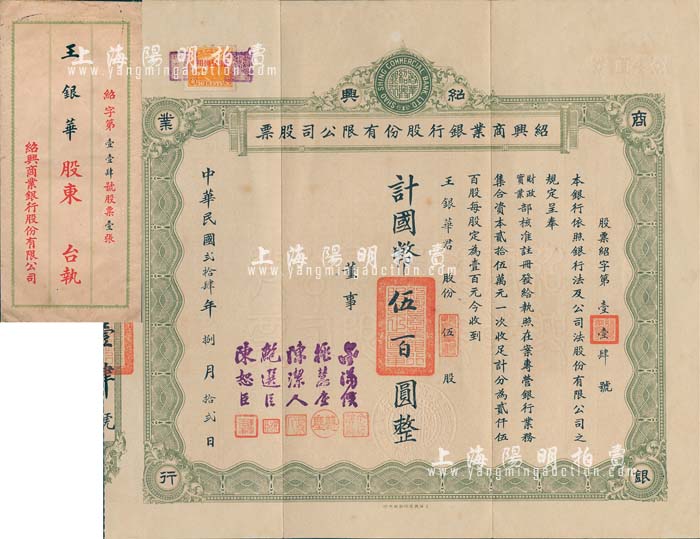 王銀華 股東 台執
紹字第壹壹肆號股票壹張
紹興商業銀行股份有限公司
SHAO SHING COMMERCIAL BANK LTD.
紹興
商業
銀行
紹興商業銀行股份有限公司股票
股票紹字第壹壹肆號
本銀行依照銀行法及公司法股份有限公司之
規定呈奉
財政
實業部核准註冊發給執照在案專營銀行業務
集合資本貳拾伍萬元一次收足計分為貳仟伍
百股每股定為壹百元今收到
王銀華君 股份 伍 股
計國幣伍百圓整
董事
陳潔人
鮑選臣
陳恕臣
中華民國貳拾肆年捌月拾貳日
壹肆號
上海陽明拍賣
www.yangmingauction.com
上海陽明拍賣
www.yangmingauction.com
上海陽明拍賣
www.yangmingauction.com
上海陽明拍賣
www.yangmingauction.com